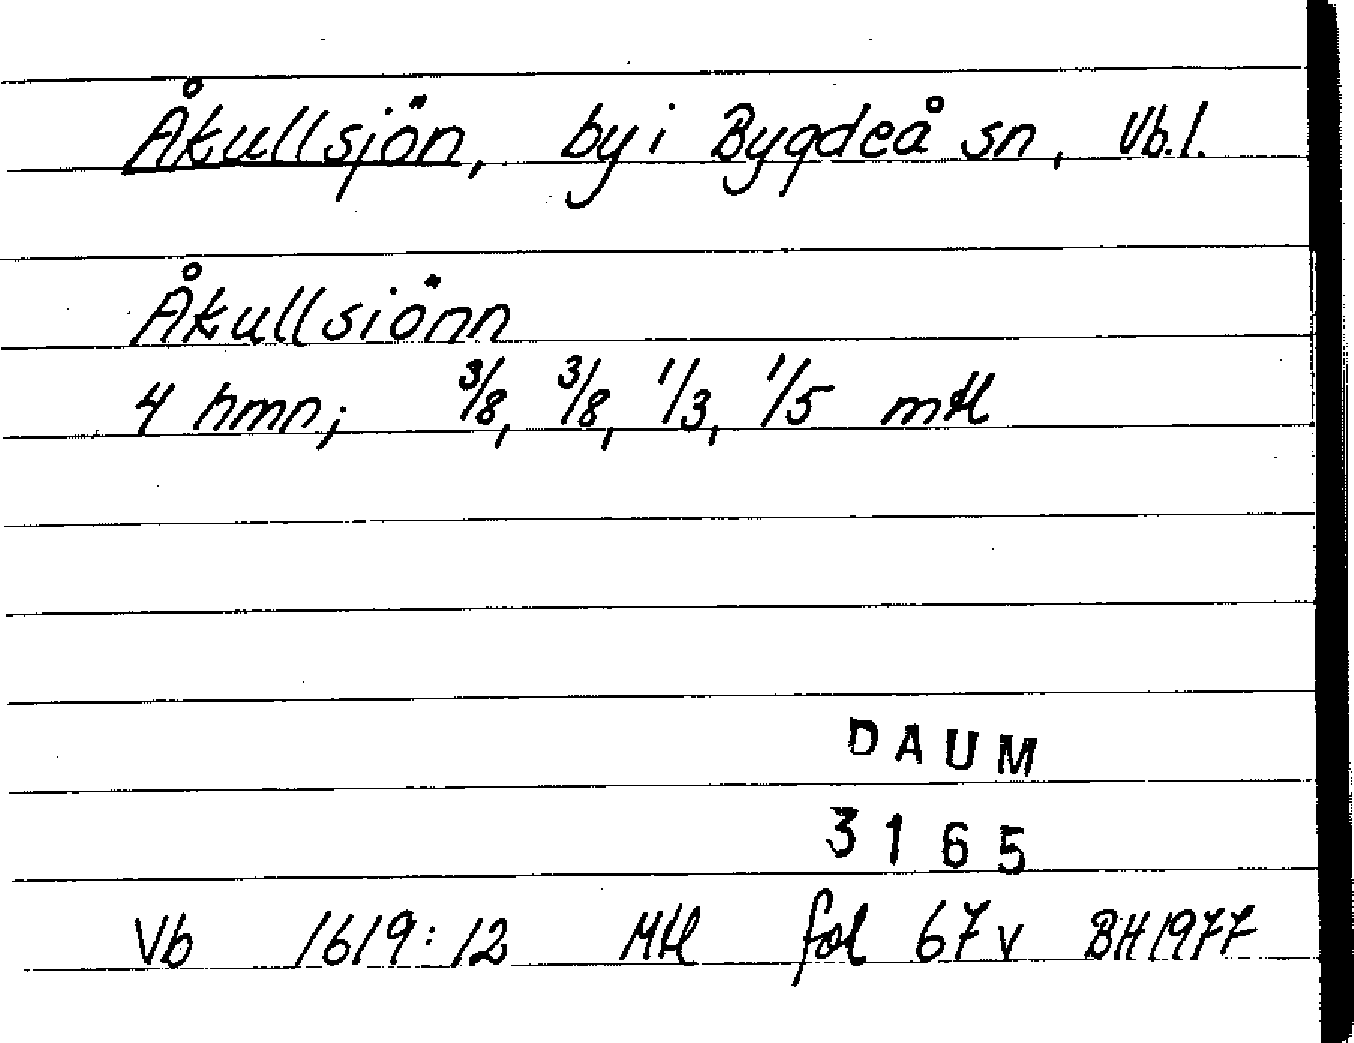 Åkullsjön, by i Bygdeå sn, Vb.l.
Åkullsiönn
4 hmn; 3/8, 3/8, 1/3, 1/5 mtl
DAUM
3165
Vb 1619:12 Mtl fol 67v BH1977